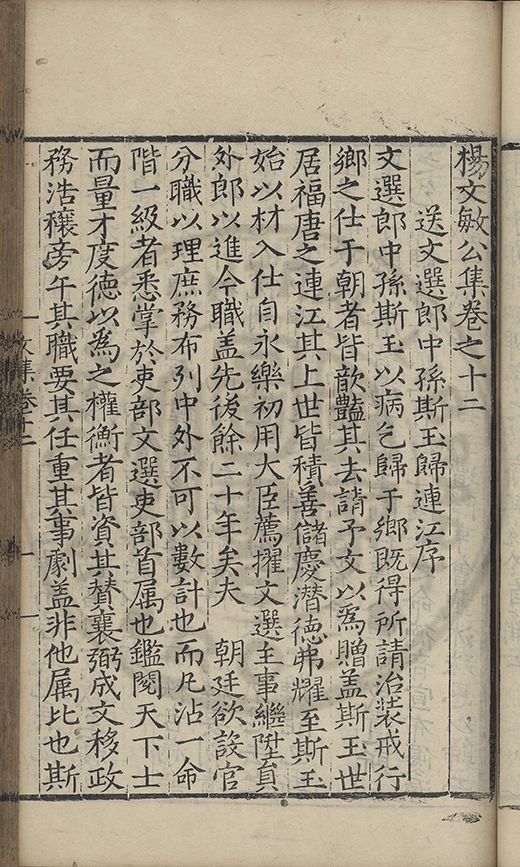 楊文敏公集卷之十二
送文選郎中孫斯玉歸連江序
文選郎中孫斯玉以病乞歸于鄉既得所請治裝戒行
鄉之仕于朝者皆歆豔其去請予文以爲贈蓋斯玉世
居福唐之連江其上世皆積善儲慶潜德弗耀至斯玉
始以材入仕自永樂初用大臣薦擢文選主事繼陞員
外郎以進今職蓋先後餘二十年矣夫　朝廷欲設官
分職以理庶務布列中外不可以數計也而凡沾一命
階一級者悉掌於吏部文選吏部首属也鑑閱天下士
而量才度德以爲之權衡者皆資其賛襄弼成文移政
務浩穰旁午其職要其任重其事劇蓋非他属比也斯
文集卷十二